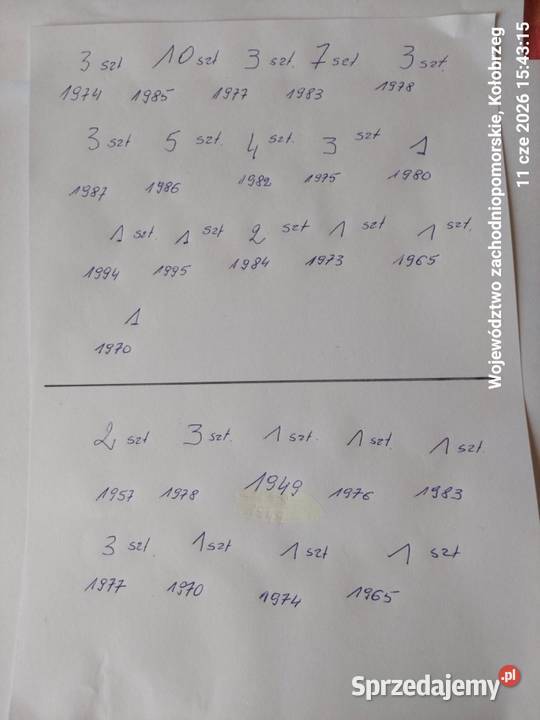 3 szt 10 szt 3 szt. 7 szt 3 szt.
1974 1985 1977 1983 1978
3 szt 5 szt. 4 szt. 3 szt 1
1987 1986 1982 1975 1980
1 szt. 1 szt 2 szt 1 szt 1 szt.
1994 1995 1984 1973 1965
1
1970
2 szt 3 szt. 1 szt. 1 szt. 1 szt.
1957 1978 1949 1976 1983
3 szt. 1 szt 1 szt 1 szt
1977 1970 1974 1965
Województwo zachodniopomorskie, Kołobrzeg
11 cze 2026 15:43:15
Sprzedajemy.pl